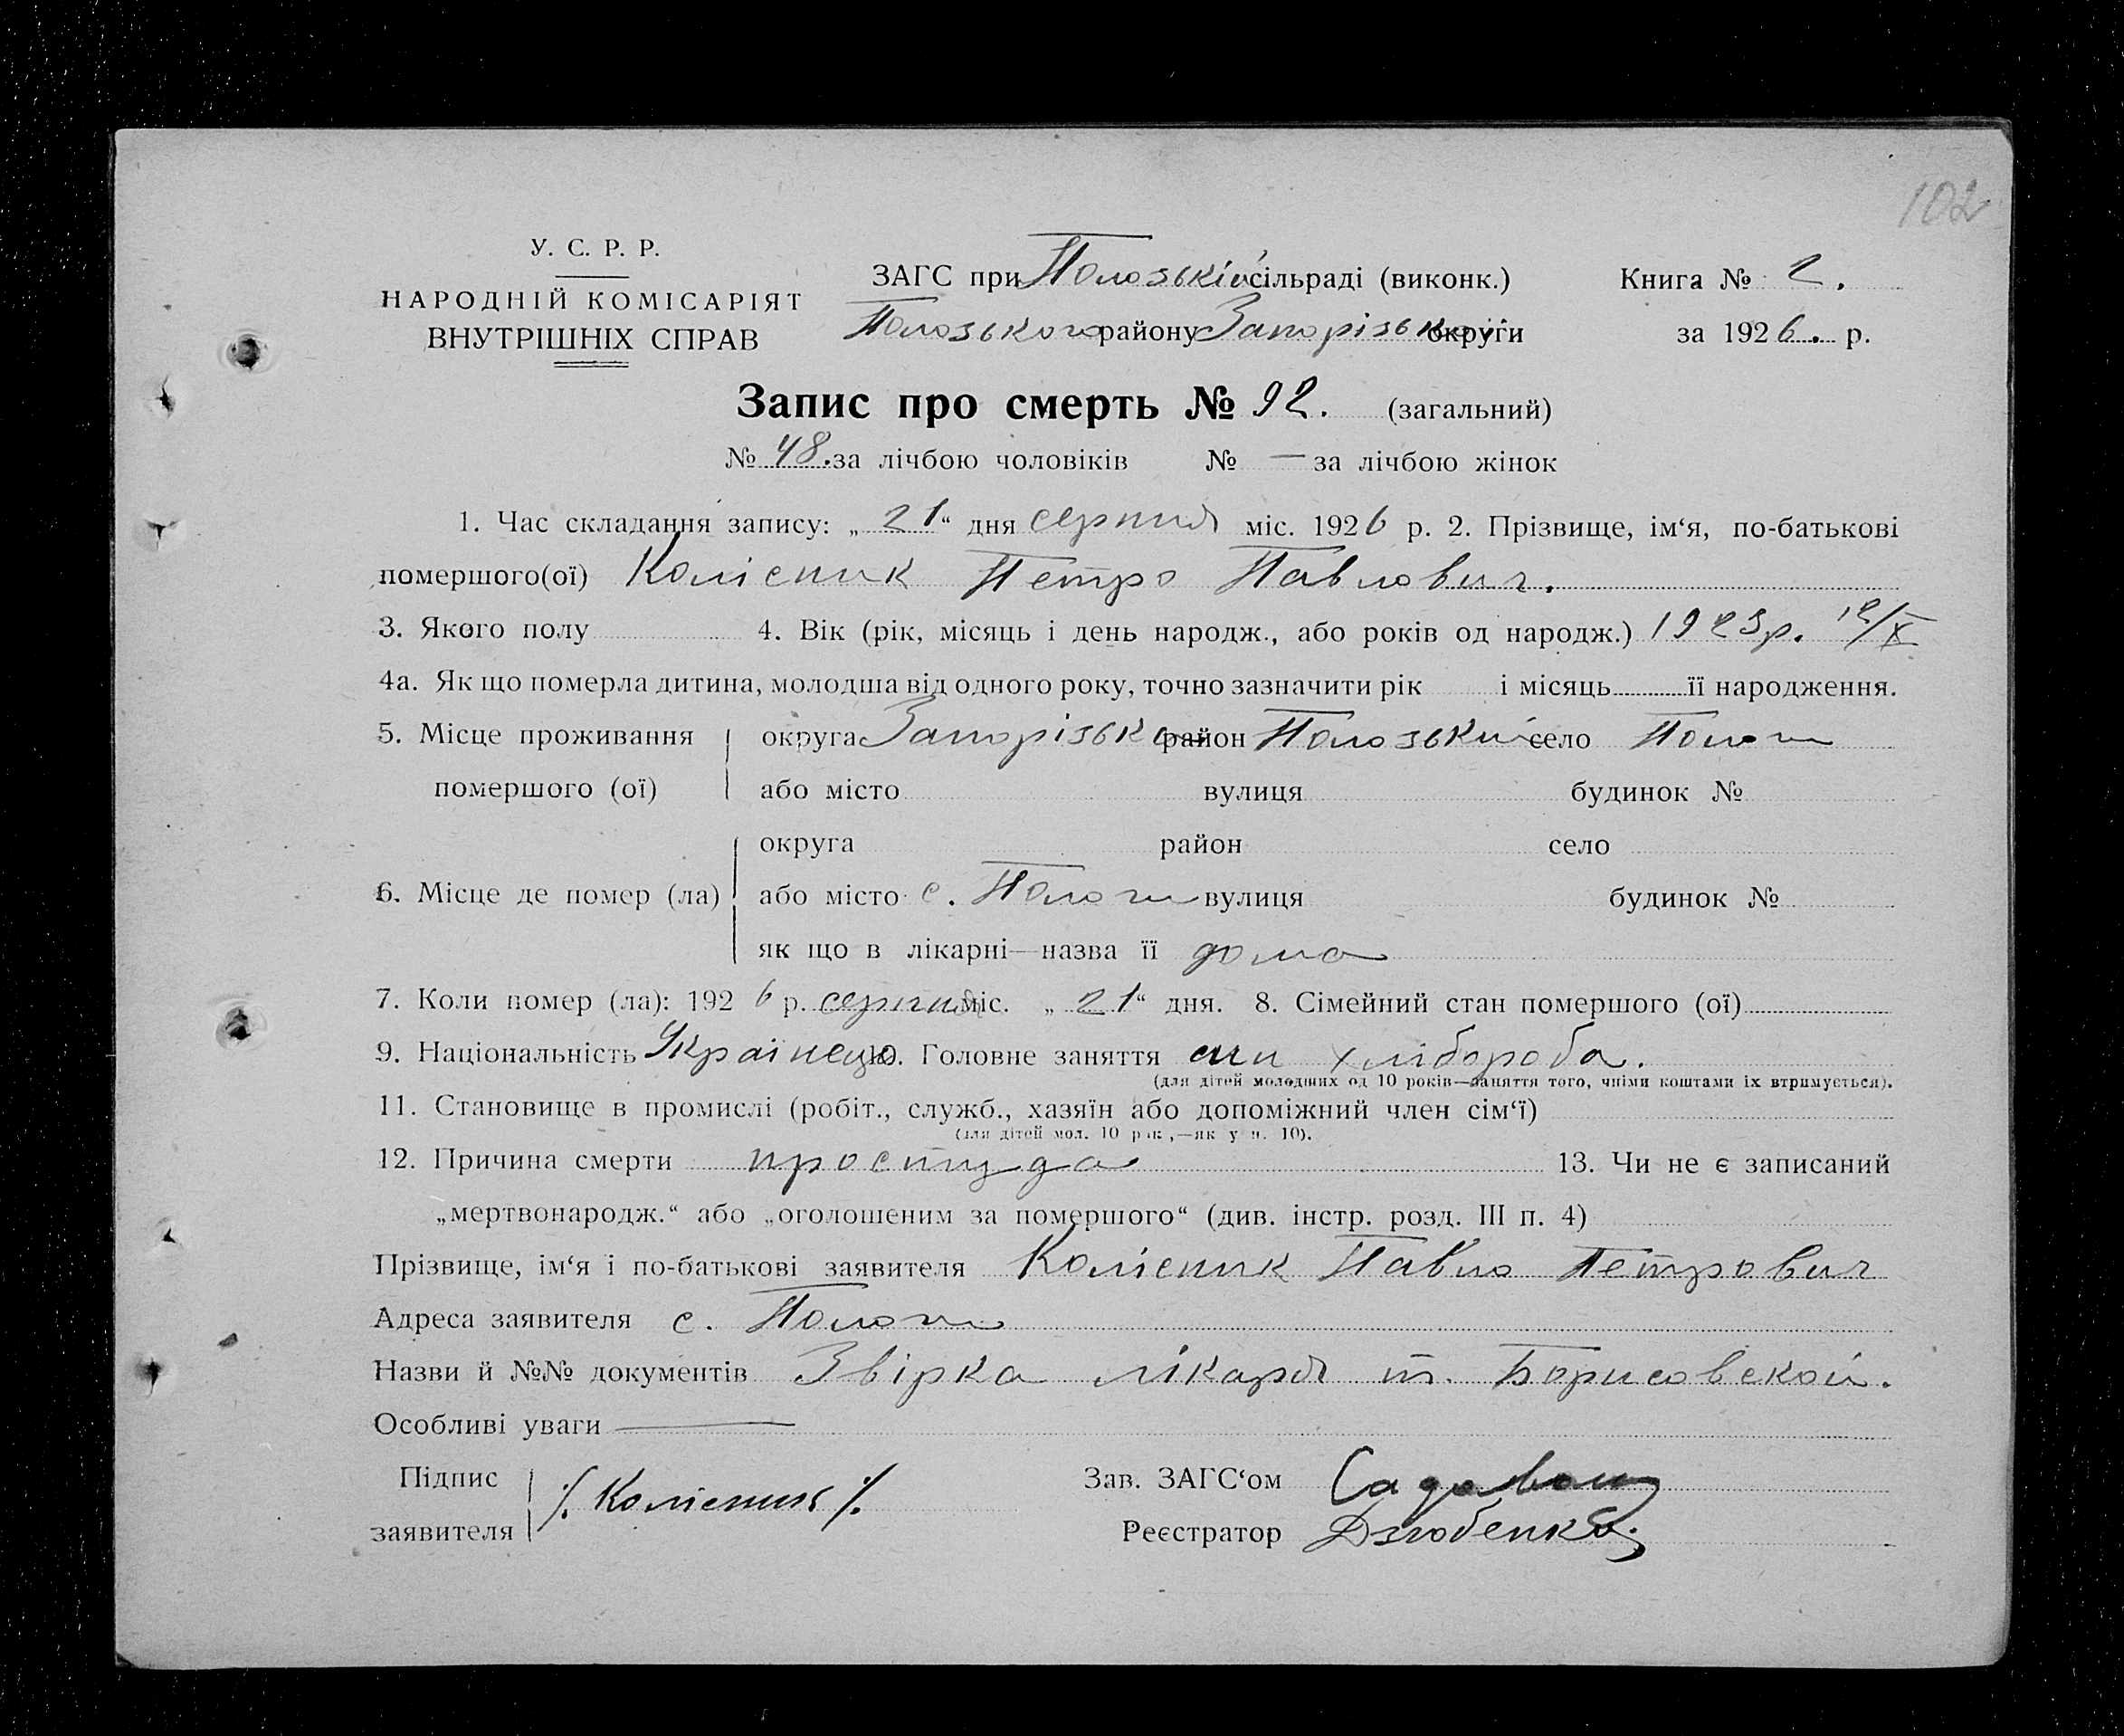 102
У. С. Р. Р.
НАРОДНІЙ КОМІСАРІЯТ
ВНУТРІШНІХ СПРАВ
ЗАГС при Пологській сільраді (виконк.)
Пологського району Запорізької округи
Книга № 2.
за 1926. р.
Запис про смерть № 92. (загальний)
№ 48. за лічбою чоловіків № — за лічбою жінок
1. Час складання запису: „21“ дня серпня міс. 1926 р. 2. Прізвище, ім‘я, по-батькові
помершого(ої) Колісник Петро Павлович.
3. Якого полу 4. Вік (рік, місяць і день народж., або років од народж.) 1923р. 12/X
4а. Як що померла дитина, молодша від одного року, точно зазначити рік і місяць її народження.
5. Місце проживання округа Запорізька район Пологський село Пологи
помершого (ої) або місто вулиця будинок №
округа район село
6. Місце де помер (ла) або місто с. Пологи вулиця будинок №
як що в лікарні—назва її дома
7. Коли помер (ла): 1926 р. серпня міс. „21“ дня. 8. Сімейний стан помершого (ої)
9. Національність Українець 10. Головне заняття син хлібороба.
(для дітей молодших од 10 років—заняття того, чиїми коштами їх втримується).
11. Становище в промислі (робіт., служб., хазяїн або допоміжний член сім‘ї)
(для дітей мол. 10 рок.,—як у п. 10).
12. Причина смерти простуда 13. Чи не є записаний
„мертвонародж.“ або „оголошеним за помершого“ (див. інстр. розд. III п. 4)
Прізвище, ім‘я і по-батькові заявителя Колісник Павло Петрович
Адреса заявителя с. Пологи
Назви й №№ документів Звірка лікаря т. Борисовской.
Особливі уваги —
Підпис
заявителя /. Колісник /.
Зав. ЗАГС‘ом
Реєстратор Дзюбенко.